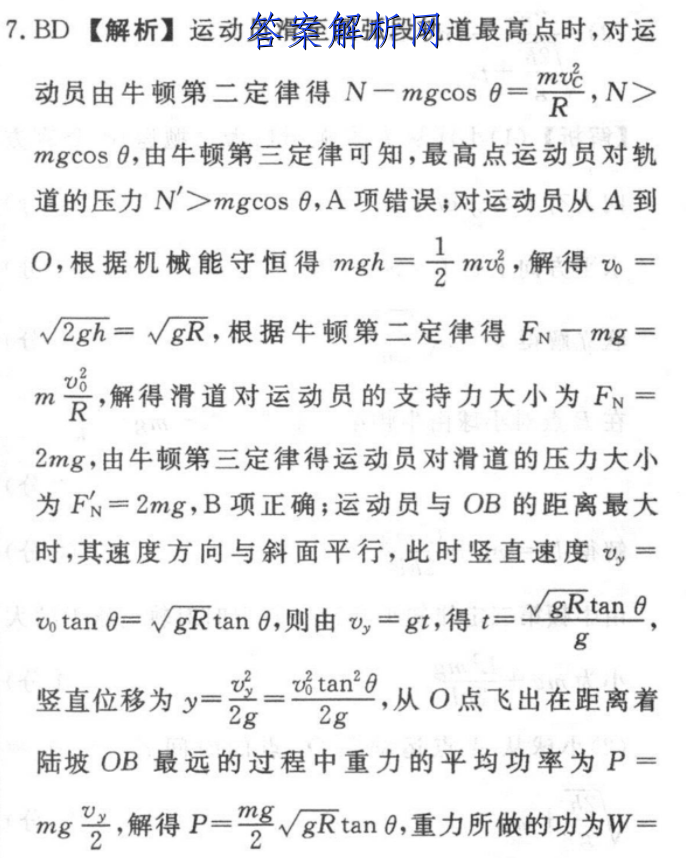 7. BD 【解析】运动员滑至圆弧段轨道最高点时,对运
答案解析网
动员由牛顿第二定律得 N－mgcos θ＝mv_C²/R,N＞
mgcos θ,由牛顿第三定律可知,最高点运动员对轨
道的压力 N′＞mgcos θ,A 项错误;对运动员从 A 到
O,根据机械能守恒得 mgh＝1/2 mv₀²,解得 v₀＝
√2gh＝√gR,根据牛顿第二定律得 F_N－mg＝
m v₀²/R,解得滑道对运动员的支持力大小为 F_N＝
2mg,由牛顿第三定律得运动员对滑道的压力大小
为 F′_N＝2mg,B 项正确;运动员与 OB 的距离最大
时,其速度方向与斜面平行,此时竖直速度 v_y＝
v₀tan θ＝√gR tan θ,则由 v_y＝gt,得 t＝√gR tan θ/g,
竖直位移为 y＝v_y²/2g＝v₀²tan²θ/2g,从 O 点飞出在距离着
陆坡 OB 最远的过程中重力的平均功率为 P＝
mg v_y/2,解得 P＝mg/2 √gR tan θ,重力所做的功为W＝